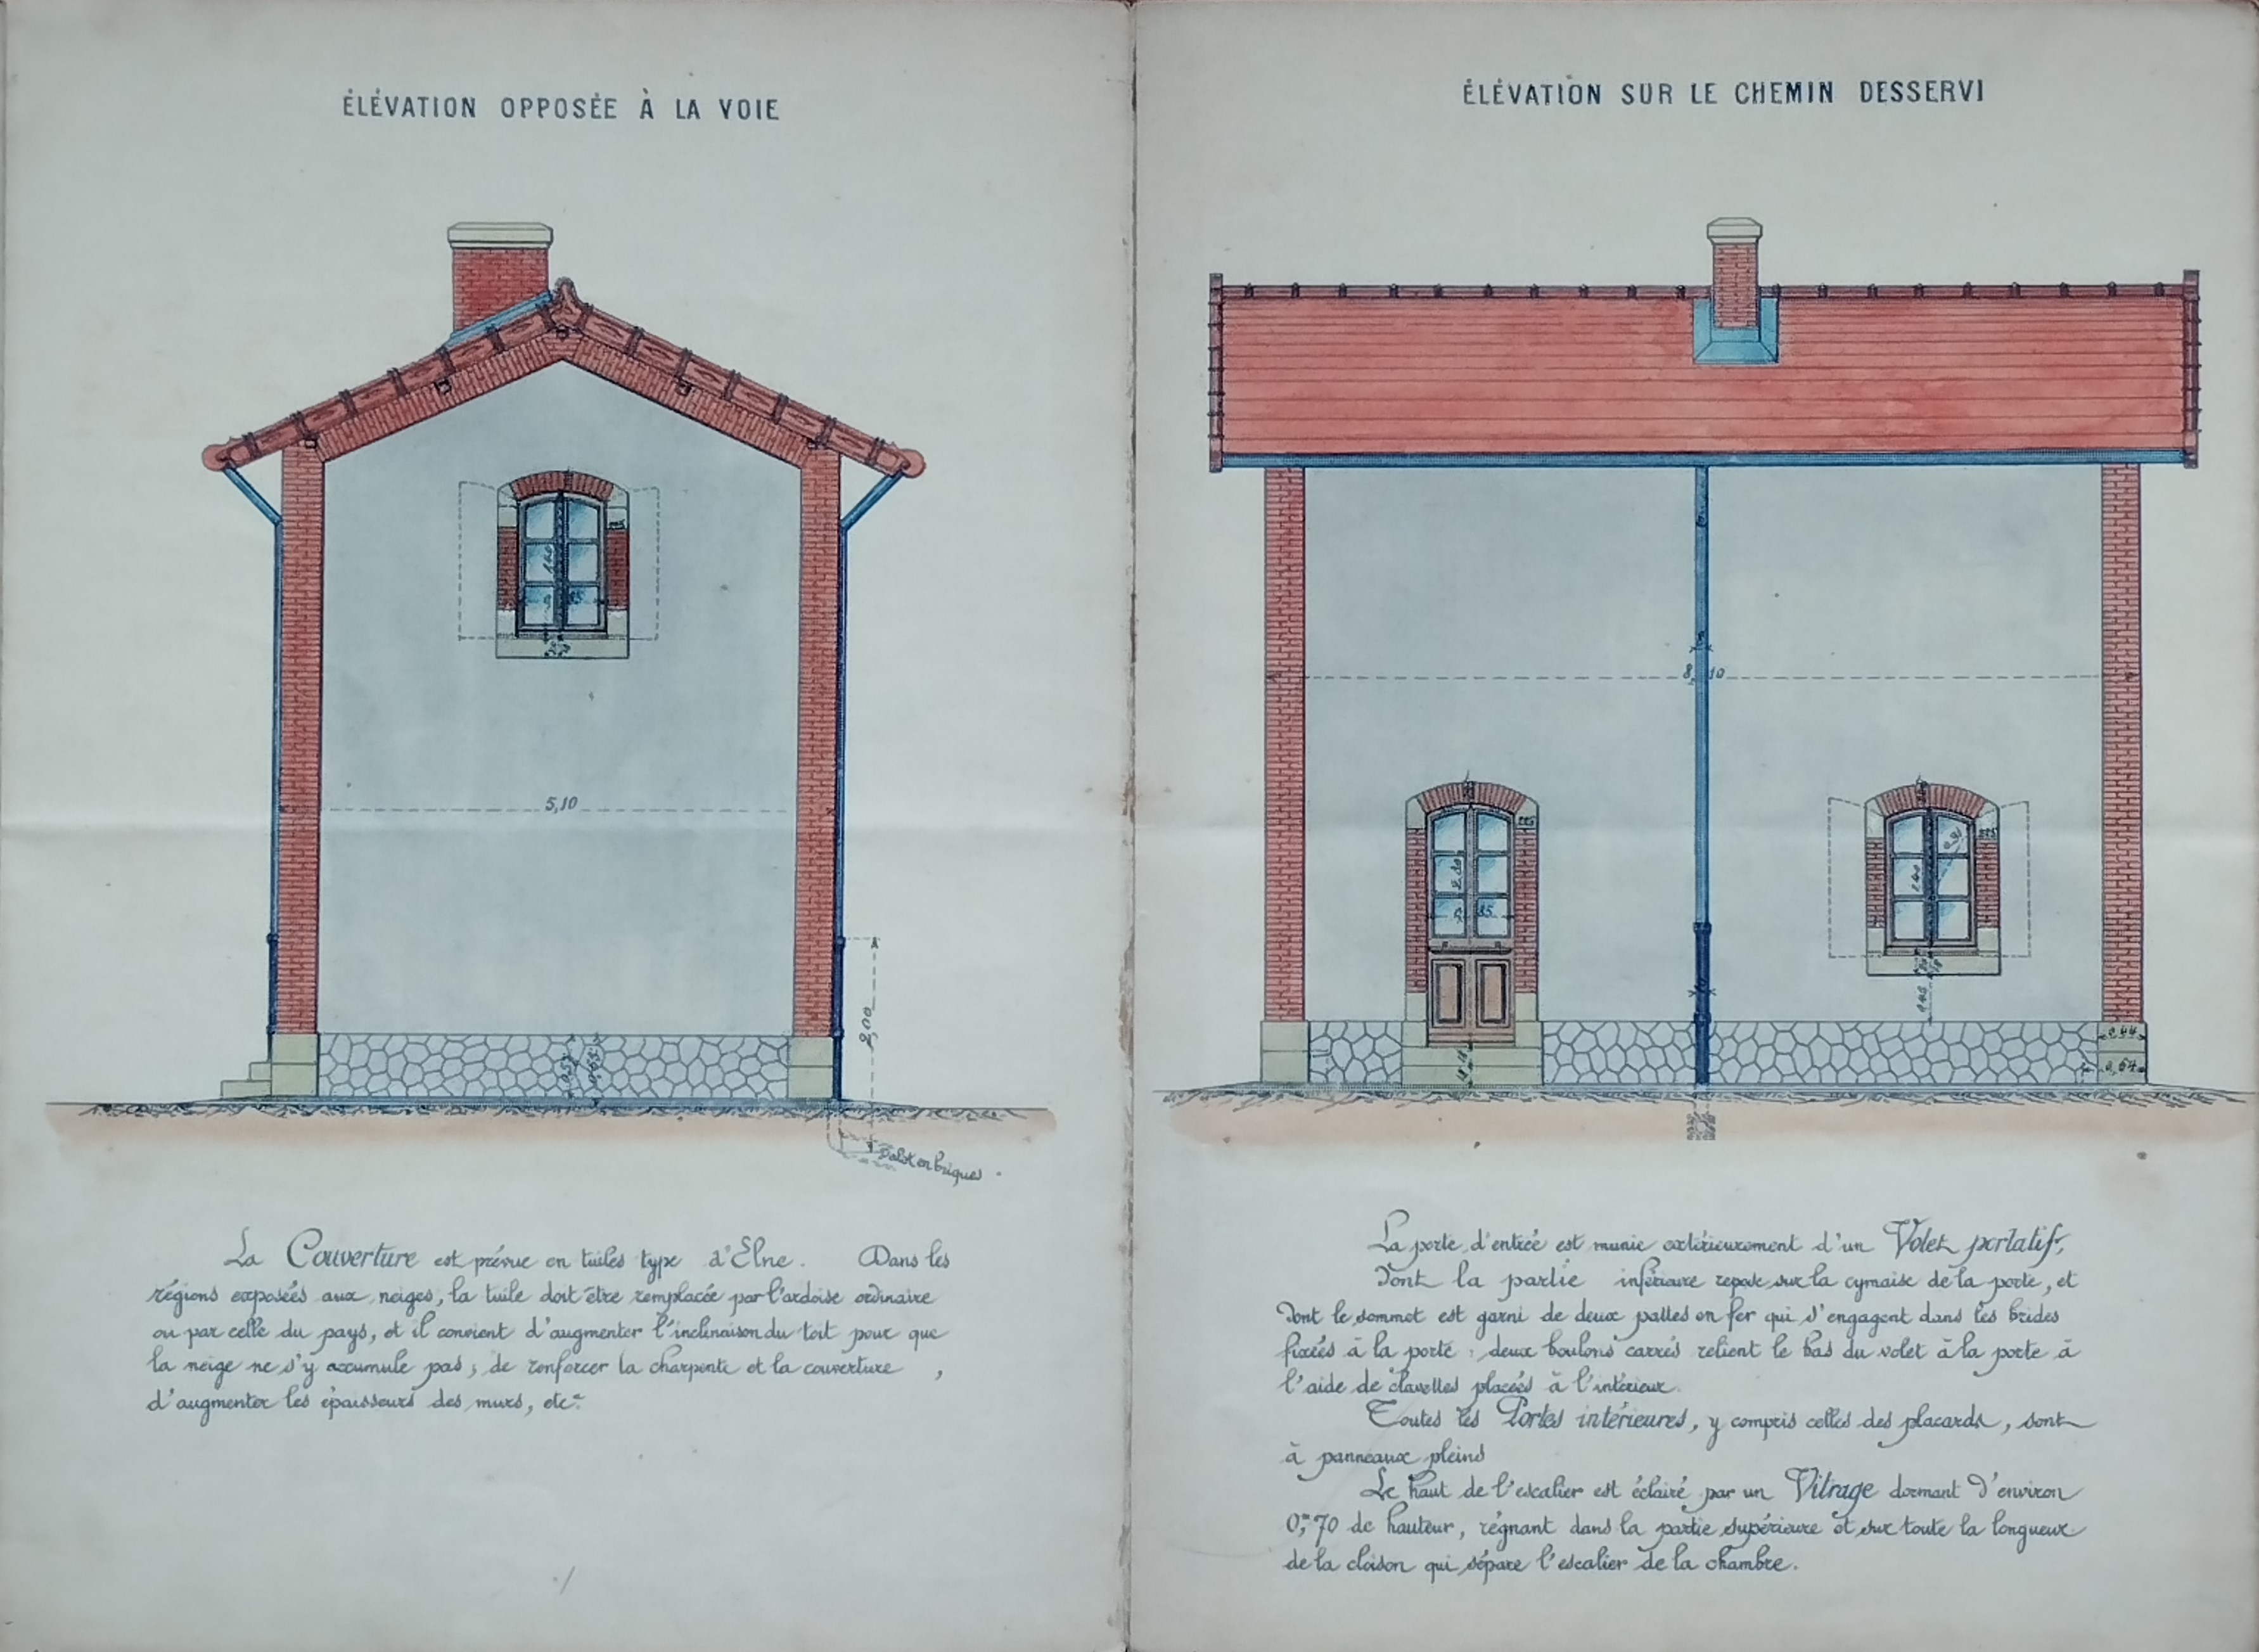 ÉLÉVATION OPPOSÉE À LA VOIE
5,10
2,00
Dalot en briques
La Couverture est prévue en tuiles type d'Elne. Dans les
régions exposées aux neiges, la tuile doit être remplacée par l'ardoise ordinaire
ou par celle du pays, et il convient d'augmenter l'inclinaison du toit pour que
la neige ne s'y accumule pas; de renforcer la charpente et la couverture,
d'augmenter les épaisseurs des murs, etc.
ÉLÉVATION SUR LE CHEMIN DESSERVI
8,10
0,44
0,64
La porte d'entrée est munie extérieurement d'un Volet portatif,
dont la partie inférieure repose sur la cymaise de la porte, et
dont le sommet est garni de deux pattes en fer qui s'engagent dans les brides
fixées à la porte: deux boulons carrés relient le bas du volet à la porte à
l'aide de clavettes placées à l'intérieur.
Toutes les Portes intérieures, y compris celles des placards, sont
à panneaux pleins
Le haut de l'escalier est éclairé par un Vitrage dormant d'environ
0,m70 de hauteur, régnant dans la partie supérieure et sur toute la longueur
de la cloison qui sépare l'escalier de la chambre.